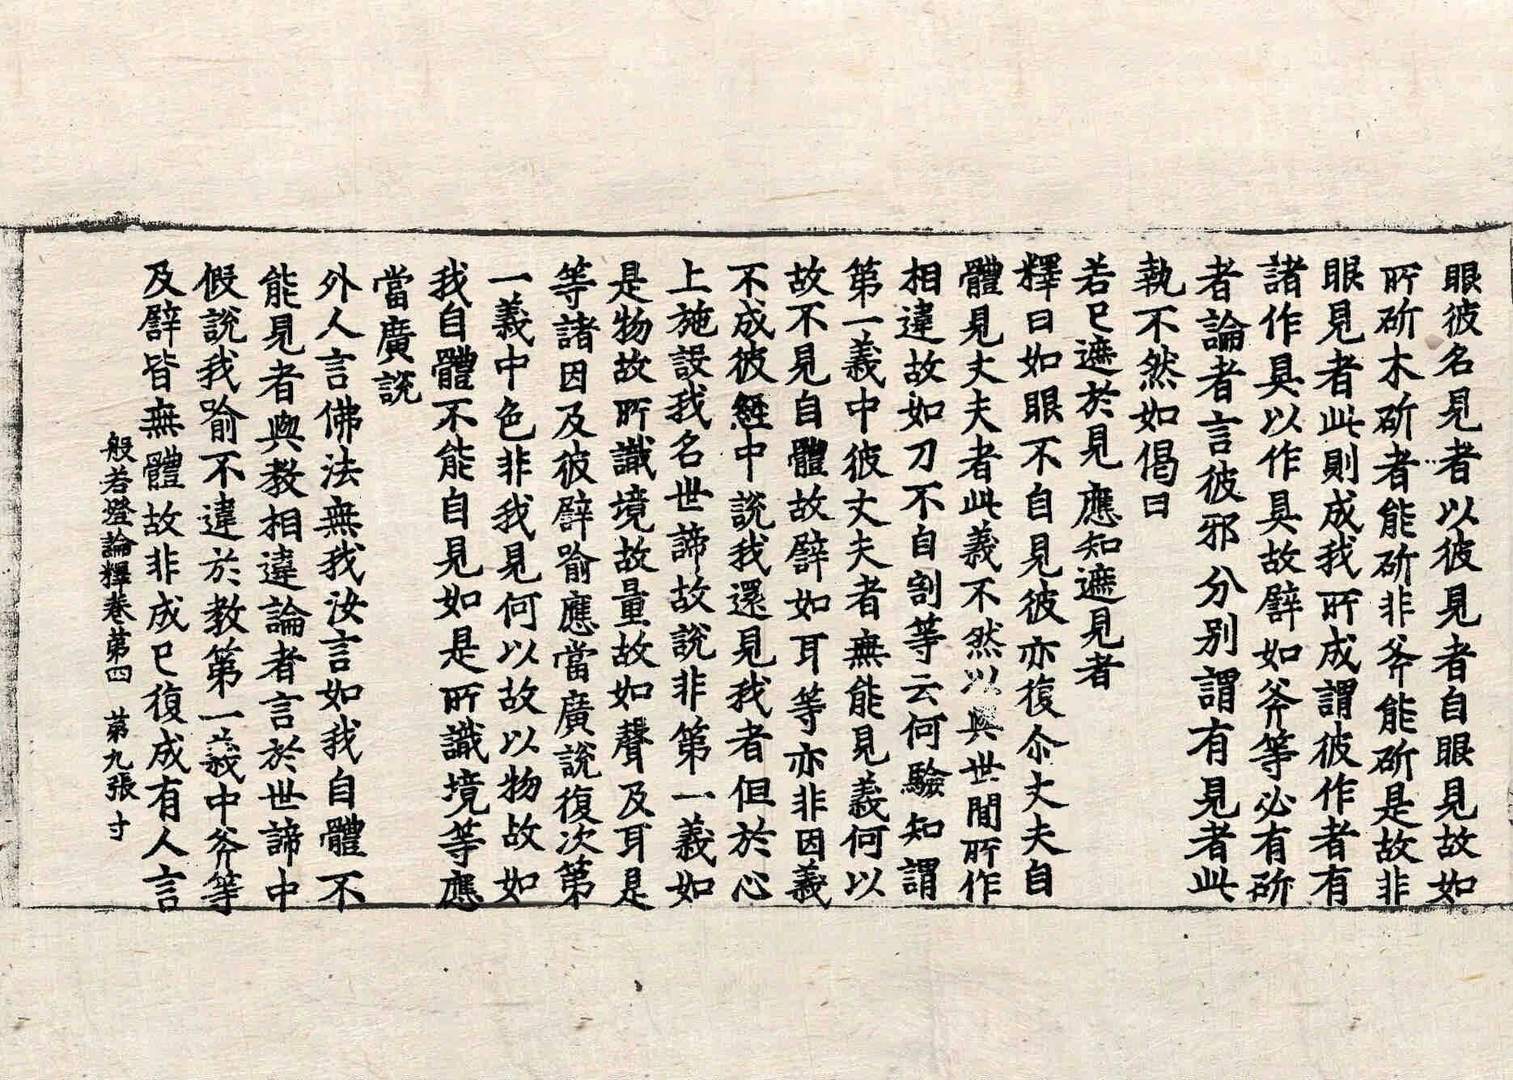 眼彼名見者以彼見者自眼見故如
所斫木斫者能斫非斧能斫是故非
眼見者此則成我所成謂彼作者有
諸作具以作具故譬如斧等必有斫
者論者言彼邪分別謂有見者此
執不然如偈曰
若已遮於見應知遮見者
釋曰如眼不自見彼亦復尒丈夫自
體見丈夫者此義不然以與世間所作
相違故如刀不自割等云何驗知謂
第一義中彼丈夫者無能見義何以
故不見自體故譬如耳等亦非因義
不成彼經中說我還見我者但於心
上施設我名世諦故說非第一義如
是物故所識境故量故如聲及耳是
等諸因及彼譬喻應當廣說復次第
一義中色非我見何以故以物故如
我自體不能自見如是所識境等應
當廣說
外人言佛法無我汝言如我自體不
能見者與教相違論者言於世諦中
假說我喻不違於教第一義中斧等
及譬皆無體故非成已復成有人言
般若燈論釋卷第四 第九張 寸